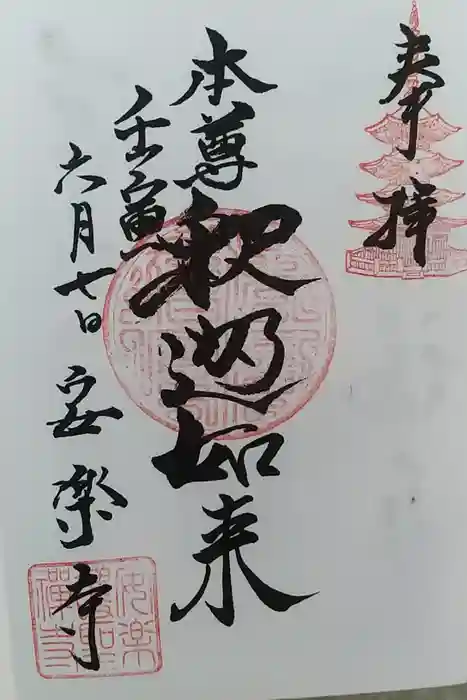 奉拝
本尊
釈迦如来
壬寅
六月七日
安楽寺